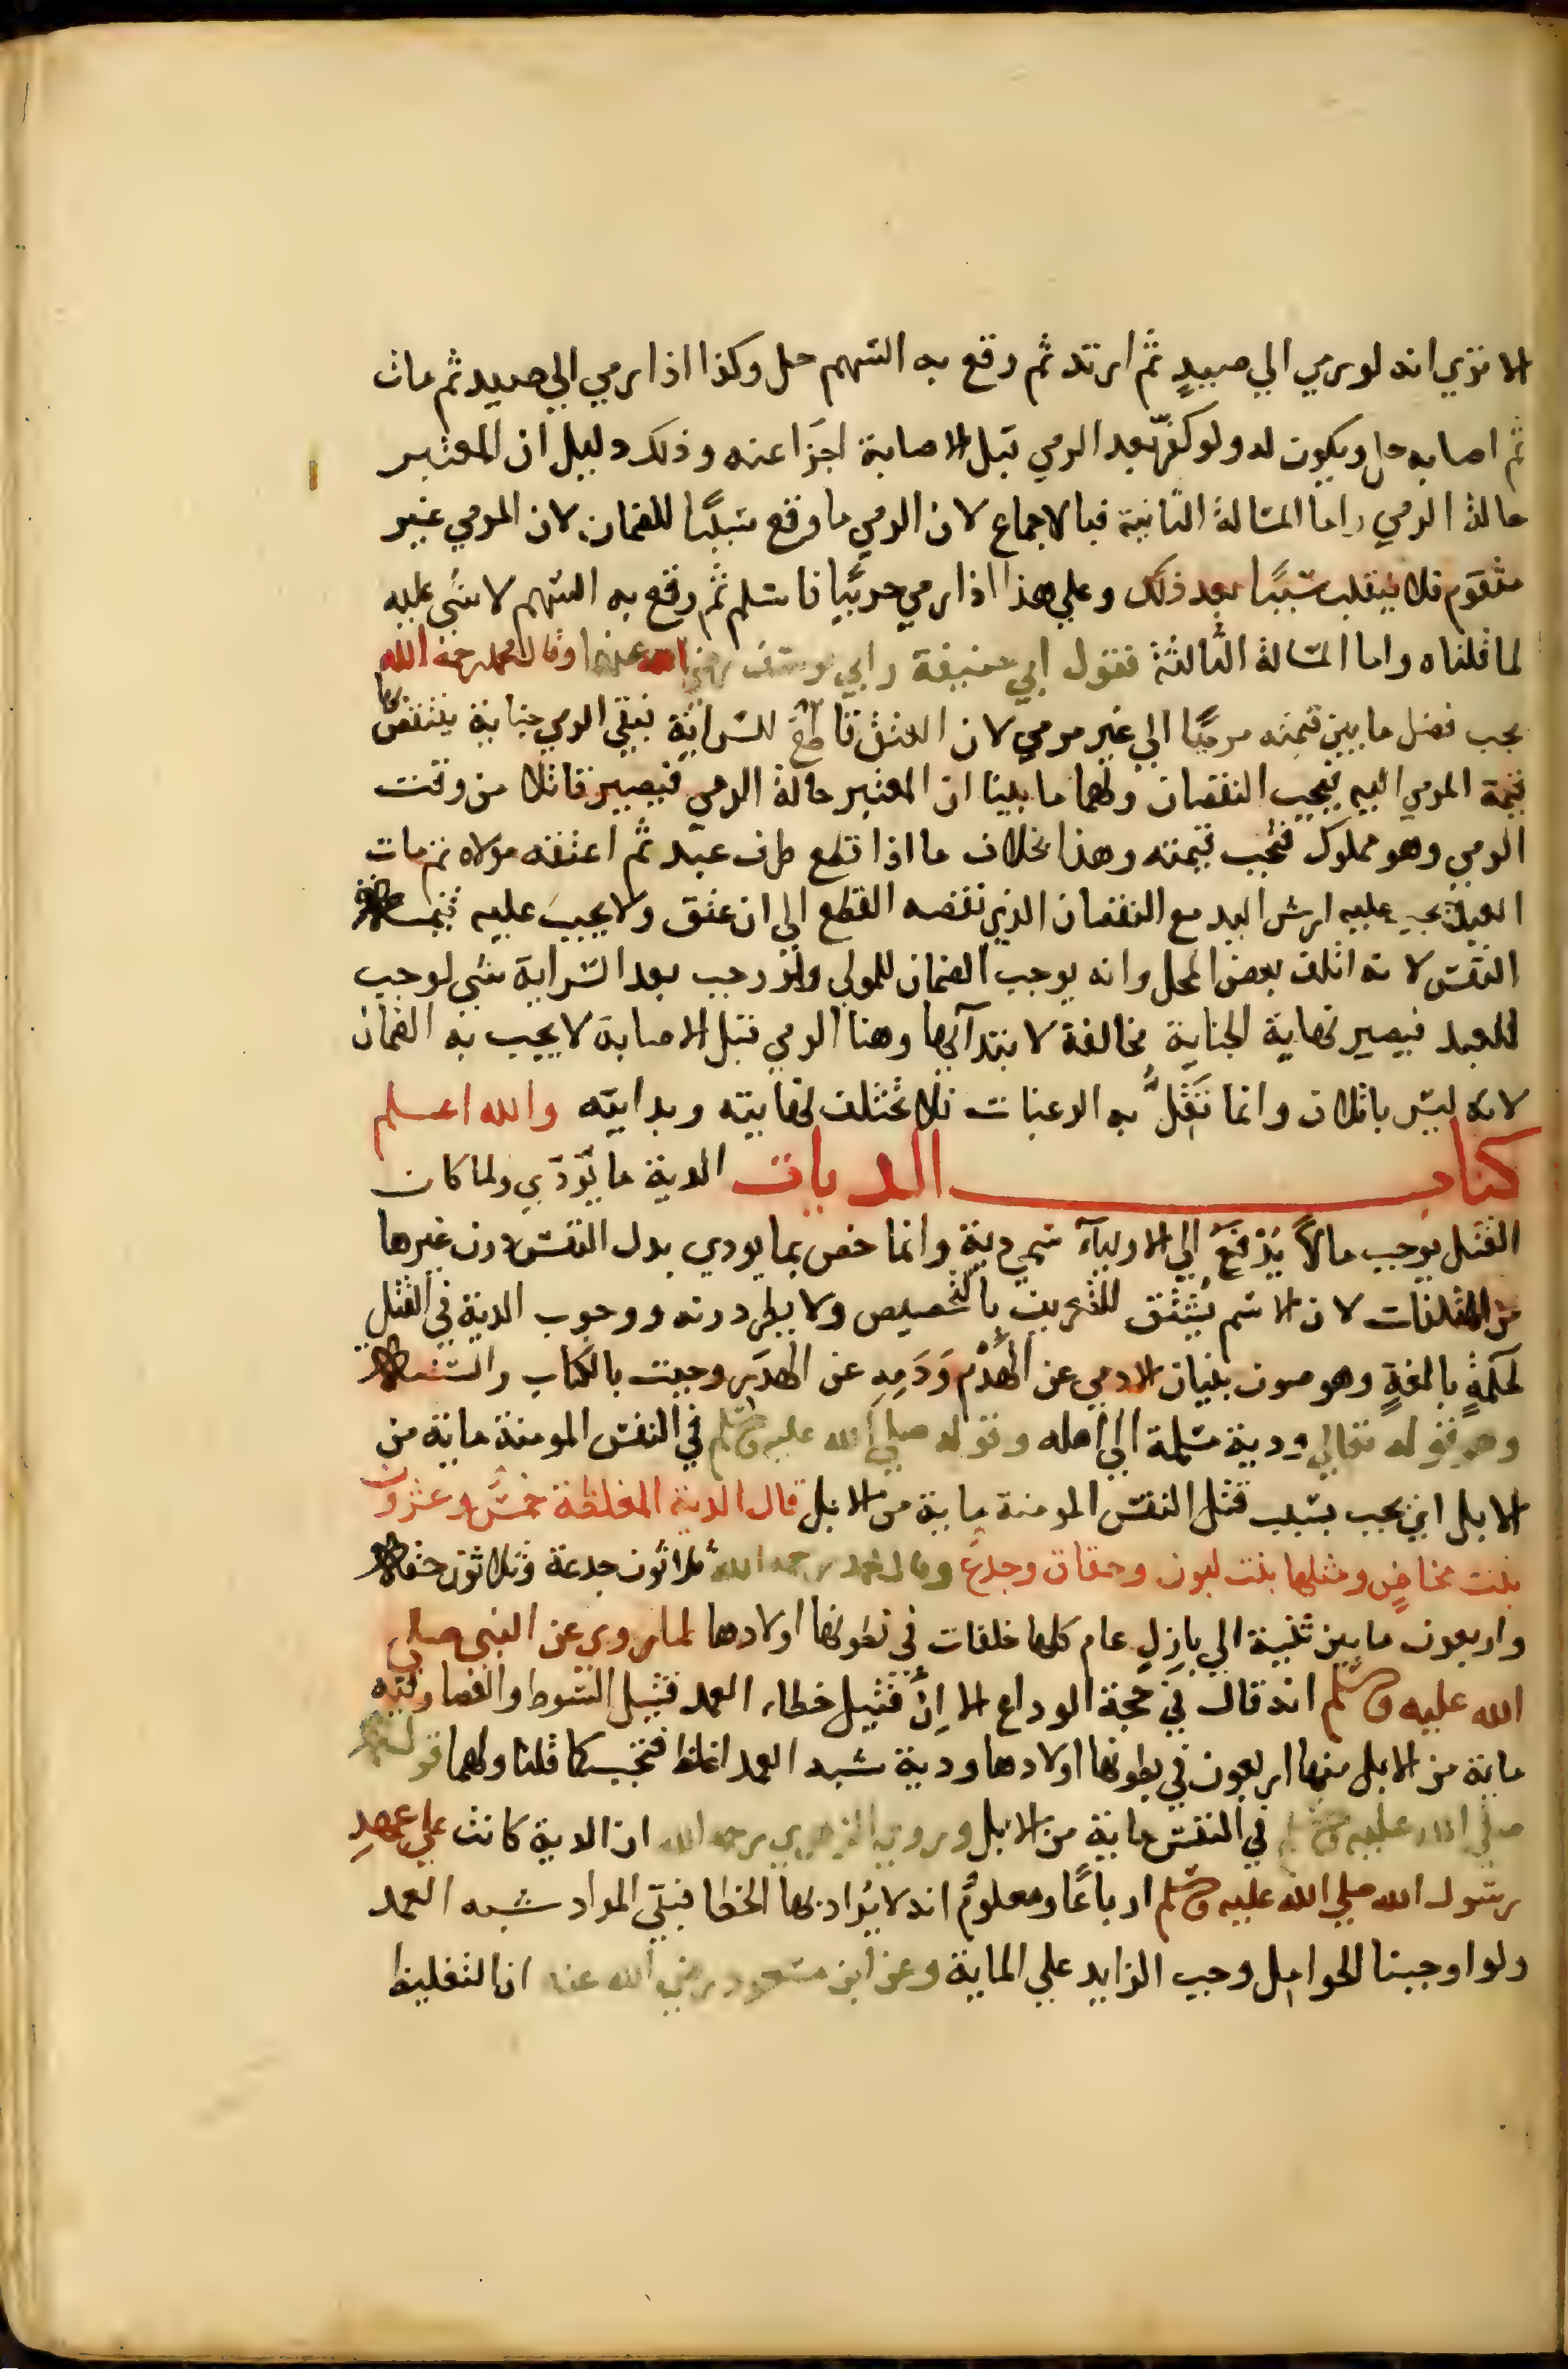 الا تري انه لو رمي الي صيدٍ ثم ارتد ثم وقع به السهم حل وكذا اذا رمي الي صيد ثم مات
ثم اصابه حل ويكون له ولو كفّر بعد الرمي قبل الاصابة اجزَا عنه وذلك دليل ان المعتبر
حالة الرمي واما المسالة الثانية فبالاجماع لان الرمي ما وقع سببًا للضمان لان المرمي غير
متقوم فلا ينقلب سببًا بعد ذلك وعلي هذا اذا رمي حربيًا فاسلم ثم وقع به السهم لا شي عليه
لما قلناه واما المسالة الثالثة فقول ابي حنيفة وابي يوسف رضي الله عنهما وقال محمد رحمه الله
يجب فضل ما بين قيمته مرميًا الي غير مرمي لان العتق قاطعٌ للسراية فبقي الرمي جناية ينتقص بها
قيمة المرمي اليه فيجب النقصان ولهما ما بينا ان المعتبر حالة الرمي فيصير قاتلا من وقت
الرمي وهو مملوك فتجب قيمته وهذا بخلاف ما اذا قطع طرف عبد ثم اعتقه مولاه ثم مات
العبد يجب عليه ارش اليد مع النقصان الذي نقصه القطع الي ان عتق ولا يجب عليه قيمة
النفس لانه اتلف بعض المحل وانه يوجب الضمان للمولي ولو وجب بعد السراية شي لوجب
للعبد فيصير نهاية الجناية مخالفة لابتدآئها وهنا الرمي قبل الاصابة لا يجب به الضمان
لانه ليس باتلاف وانما تَقِلُّ به الرغبات فلا تختلف نهايته وبدايته والله اعلم
كتاب الديات الدية ما يُؤدّي ولما كان
القتل يوجب مالاً يُدْفعُ الي الاوليآء سمي دية وانما خص بما يودي بدل النفس دون غيرها
من المتلفات لان الاسم يُشتق للتعريف بالتخصيص ولا يطرد وانه ووجوب الدية في القتل
لحكمةٍ بالغةٍ وهو صون بنيان الادمي عن الهَدْم وَدَمِهِ عن الهدَر وجبت بالكتاب والسنة
وهو قوله تعالي ودية مسلمة الي اهله وقوله صلي الله عليه وسلم في النفس المومنة ماية من
الابل اي يجب بسبب قتل النفس المومنة ماية من الابل قال الدية المغلظة خمسٌ وعشرون
بنت مخاضٍ ومثلها بنت لبون وحقاق وجذع وقال محمد رحمه الله ثلاثون جذعة وثلاثون حقة
واربعون ما بين ثنية الي بازِلِ عام كلها خلفات في بطونها اولادها لما روي عن النبي صلي
الله عليه وسلم انه قال في حجة الوداع الا اِنَّ قتيل خطاء العمد قتيل السوط والعصا وفيه
ماية من الابل منها اربعون في بطونها اولادها ودية شبه العمد اغلظ فتجب كما قلنا ولهما قوله
صلي الله عليه وسلم في النفس ماية من الابل وروي الزهري رحمه الله ان الدية كانت علي عهدِ
رسول الله صلي الله عليه وسلم ارباعًا ومعلومٌ انه لا يُراد بها الخطا فبقي المراد شبه العمد
ولو اوجبنا الحوامِل وجب الزايد علي الماية وعن ابن مسعود رضي الله عنه ان التغليظ